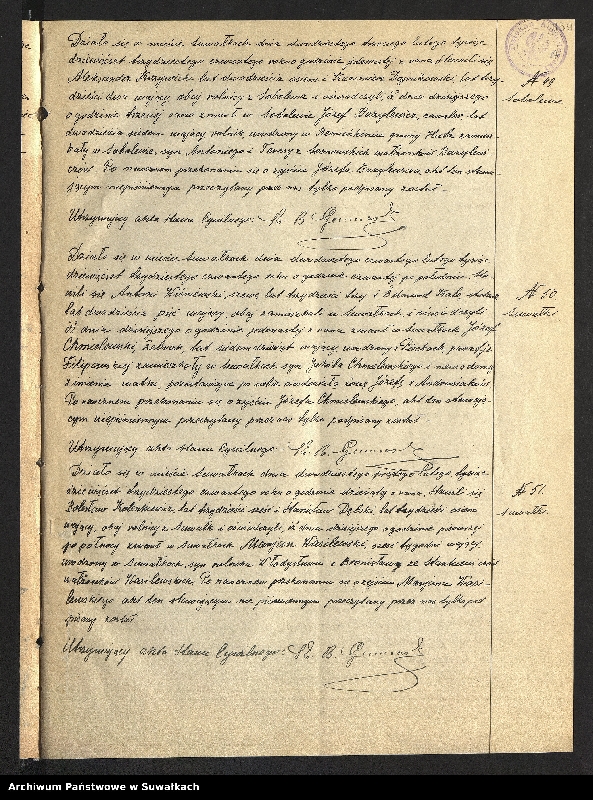 Działo się w mieście Suwałkach dnia dwudziestego trzeciego lutego tysiąc
dziewięćset trzydziestego czwartego roku o godzinie jedenastej z rana. Stawili się
Aleksander lat dwadzieścia osiem i Kazimierz lat trzy-
dzieści dwa mający, obaj rolnicy z Sobolewa i oświadczyli, iż dnia dzisiejszego
o godzinie trzeciej rano zmarł w Sobolewie Józef
dwadzieścia siedem mający rolnik, urodzony w gminy Huta zamiesz-
kały w Sobolewie, syn Antoniego i Teresy z małżonków
Po naocznem przekonaniu się o zejściu Józefa akt ten stawa-
jącym niepiśmiennym przeczytany przez nas tylko podpisany został
Utrzymujący akta stanu Cywilnego:
№ 49
Sobolewo
Działo się w mieście Suwałkach dnia dwudziestego czwartego lutego tysiąc
dziewięćset trzydziestego czwartego roku o godzinie czwartej po południu. Sta-
wili się, Antoni Wiśniewski, szewc lat trzydzieści trzy i
lat dwadzieścia pięć mający obaj zamieszkali w Suwałkach i oświadczyli
iż dnia dzisiejszego o godzinie jedenastej z rana zmarł w Suwałkach Józef
Chmielewski, żebrak, lat siedemdziesiąt mający urodzony
zamieszkały w Suwałkach syn Jakóba Chmielewskiego i niewiadomej
z imienia matki pozostawiając po sobie owdowiałą żonę Józefę z Andruszkiewiczów
Po naocznem przekonaniu się o zejściu Józefa Chmielewskiego, akt ten stawają-
cym niepiśmiennym przeczytany przez nas tylko podpisany został
Utrzymujący akta stanu Cywilnego:
№ 50
Suwałki
Działo się w mieście Suwałkach dnia dwudziestego piątego lutego tysiąc
dziewięćset trzydziestego czwartego roku o godzinie dziesiątej z rana. Stawili się
Bolesław lat trzydzieści sześć i Stanisław Dębski, lat trzydzieści osiem
mający, obaj rolnicy z Suwałk i oświadczyli, iż dnia dzisiejszego o godzinie pierwszej
po północy zmarł w Suwałkach Marjan Wasilewski, sześć tygodni mający,
urodzony w Suwałkach, syn rolnika Władysława i Bronisławy ze
małżonków Wasilewskich. Po naocznem przekonaniu się o zejściu Marjana Wasi-
lewskiego akt ten stawającym nie piśmiennym przeczytany przez nas tylko pod-
pisany został
Utrzymujący akta stanu Cywilnego:
№ 51.
Suwałki
Archiwum Państwowe w Suwałkach